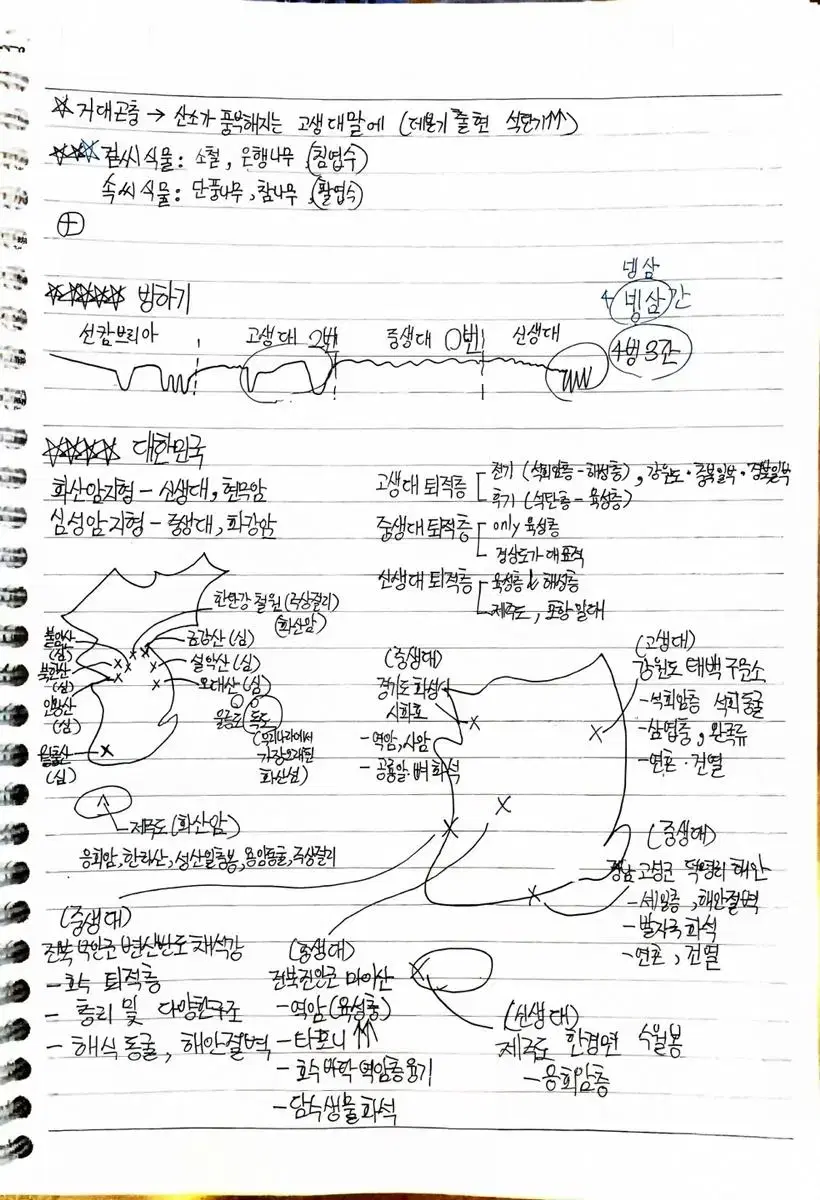 ☆ 거대곤충 → 산소가 풍부해지는 고생대말에 (데본기 출현 석탄기↑↑)
☆☆☆ 겉씨식물 : 소철, 은행나무, (침엽수)
속씨식물 : 단풍나무, 참나무, (활엽수)
⊕
☆☆☆☆☆ 빙하기
넹삼
넹삼 간
4빙3간
선캄브리아 고생대 2번 중생대 0번 신생대
☆☆☆☆ 대한민국
화산암지형 - 신생대, 현무암
심성암지형 - 중생대, 화강암
고생대 퇴적층
전기 (석회암층 - 해성층), 강원도·충북일부·경북일부
후기 (석탄층 - 육성층)
중생대 퇴적층
only 육성층
경상도가 대표적
신생대 퇴적층
육성층 & 해성층
제주도, 포항 일대
한탄강 철원 (주상절리)
(화산암)
금강산 (심)
설악산 (심)
오대산 (심)
울릉도 독도
(우리나라에서
가장오래된
화산섬)
불암산
(심)
북한산
(심)
인왕산
(심)
월출산
(심)
제주도 (화산암)
응회암, 한라산, 성산일출봉, 용암동굴, 주상절리
(중생대)
경기도 화성시
시화호
- 역암, 사암
- 공룡알, 뼈 화석
(고생대)
강원도 태백 구문소
- 석회암층 석회동굴
- 삼엽충, 완족류
- 연흔·건열
(중생대)
경남 고성군 덕명리 해안
- 셰일층, 해안절벽
- 발자국 화석
- 연흔, 건열
(중생대)
전북 부안군 변산반도 채석강
- 호수 퇴적층
- 층리 및 다양한구조
- 해식동굴, 해안절벽
(중생대)
전북진안군 마이산
- 역암 (육성층)
- 타포니 ↑↑
- 호수바닥 역암층융기
- 담수생물화석
(신생대)
제주도 한경면 수월봉
- 응회암층